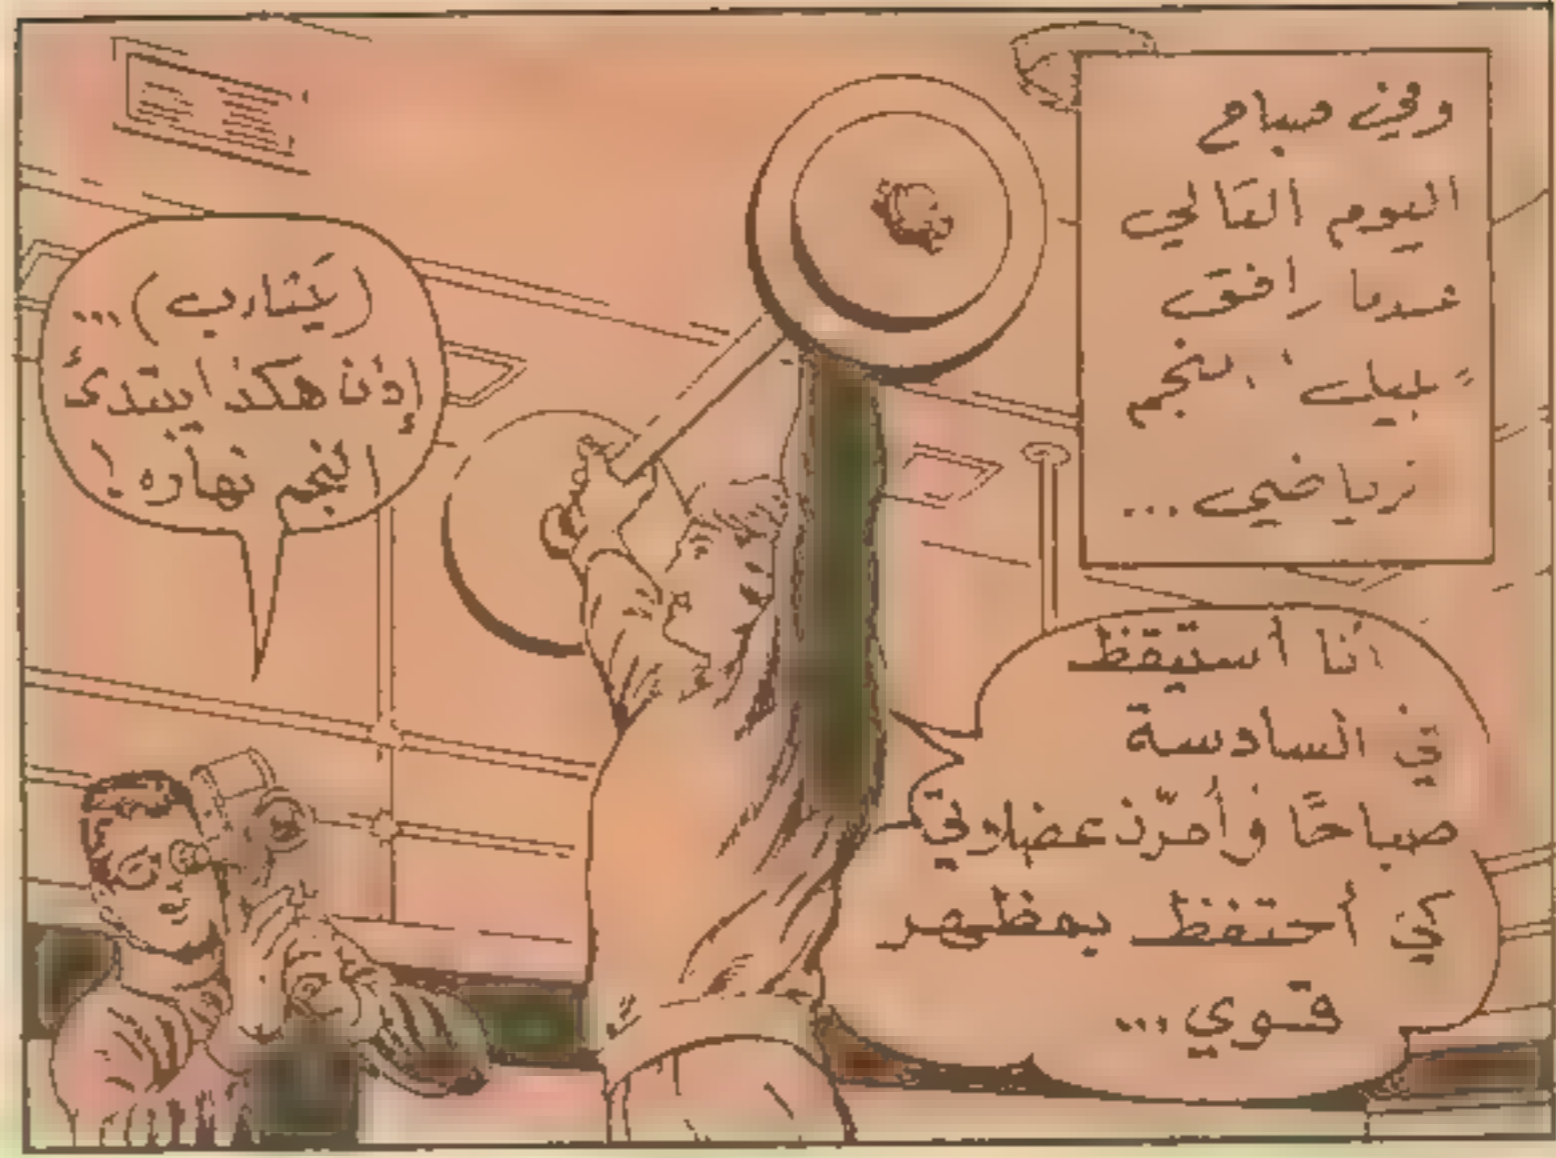 وفي صباح
اليوم التالي
عندما رافق
نبيل النجم
رياضي...
أنا أستيقظ
في السادسة
صباحًا وأمرّن عضلاتي
كي أحتفظ بمظهر
قوي...
(يثارب)...
إذن هكذا يبتدئ
النجم نهاره!